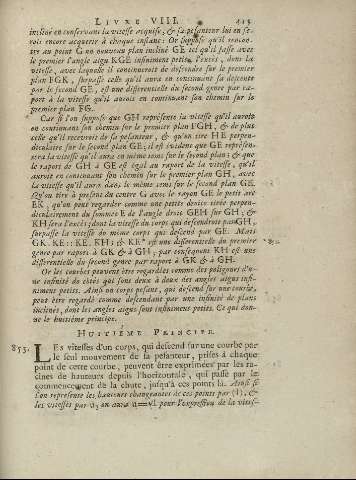 LIVRE VIII. 415
incliné en conservant la vitesse aquise, & sa pesanteur lui en fe-
rois encore acquerir à chaque instant: Or supposé qu'il rencon-
tre au point G un nouveau plan incliné GE tel qu'il fasse avec
le premier l'angle aigu KGE infiniment petit, l'excés, dont la
vitesse, avec laquelle il continueroit de descendre sur le premier
plan FGK, surpasse celle qu'il aura en continuant sa descente
par le second GE, est une differentielle du second genre par ra-
port à la vitesse qu'il auroit en continuant son chemin sur le
premier plan FG.
Car si l'on suppose que GH represente la vitesse qu'il auroit
en continuant son chemin sur le premier plan FGH, & de plus
celle qu'il recevroit de sa pesanteur, & qu'on tire HE perpen-
diculaire sur le second plan GE; il est évident que GE represen-
tera la vitesse qu'il aura en même tems sur le second plan; & que
le raport de GH à GE est égal au raport de la vitesse, qu'il
auroit en continuant son chemin sur le premier plan GH, avec
la vitesse qu'il aura dans le même tems sur le second plan GE.
Qu'on tire à present du centre G avec le rayon GE le petit arc
EK, qu'on peut regarder comme une petite droite tirée perpen-
diculairement du sommet E de l'angle droit GEH sur GH, &
KH sera l'excés, dont la vitesse du corps qui descendroit par GH,
surpasse la vitesse du même corps qui descend par GE. Mais
GK. KE:: KE. KH; & KE² est une differentielle du premier
genre par raports à GK & à GH; par consequent KH est une
differentielle du second genre par raport à GK & à GH.
Or les courbes peuvent être regardées comme des poligones d'u-
ne infinité de côtés qui sont deux à deux des angles aigus infi-
niment petits. Ainsi un corps pesant, qui descend sur une courbe,
peut être regardé comme descendant par une infinité de plans
inclinés, dont les angles aigus sont infiniment petits. Ce qui don-
ne le huitiéme principe.
HUITIÉME PRINCIPE.
853. LES vitesses d'un corps, qui descend sur une courbe par
le seul mouvement de sa pesanteur, prises à chaque
point de cette courbe, peuvent être exprimées par les ra-
cines de hauteurs depuis l'horizontale, qui passe par le
commencement de la chute, jusqu'à ces points là. Ainsi si
l'on represente les hauteurs changeantes de ces points par (1), &
les vitesses par u, on aura u=√1 pour l'expression de la vites-